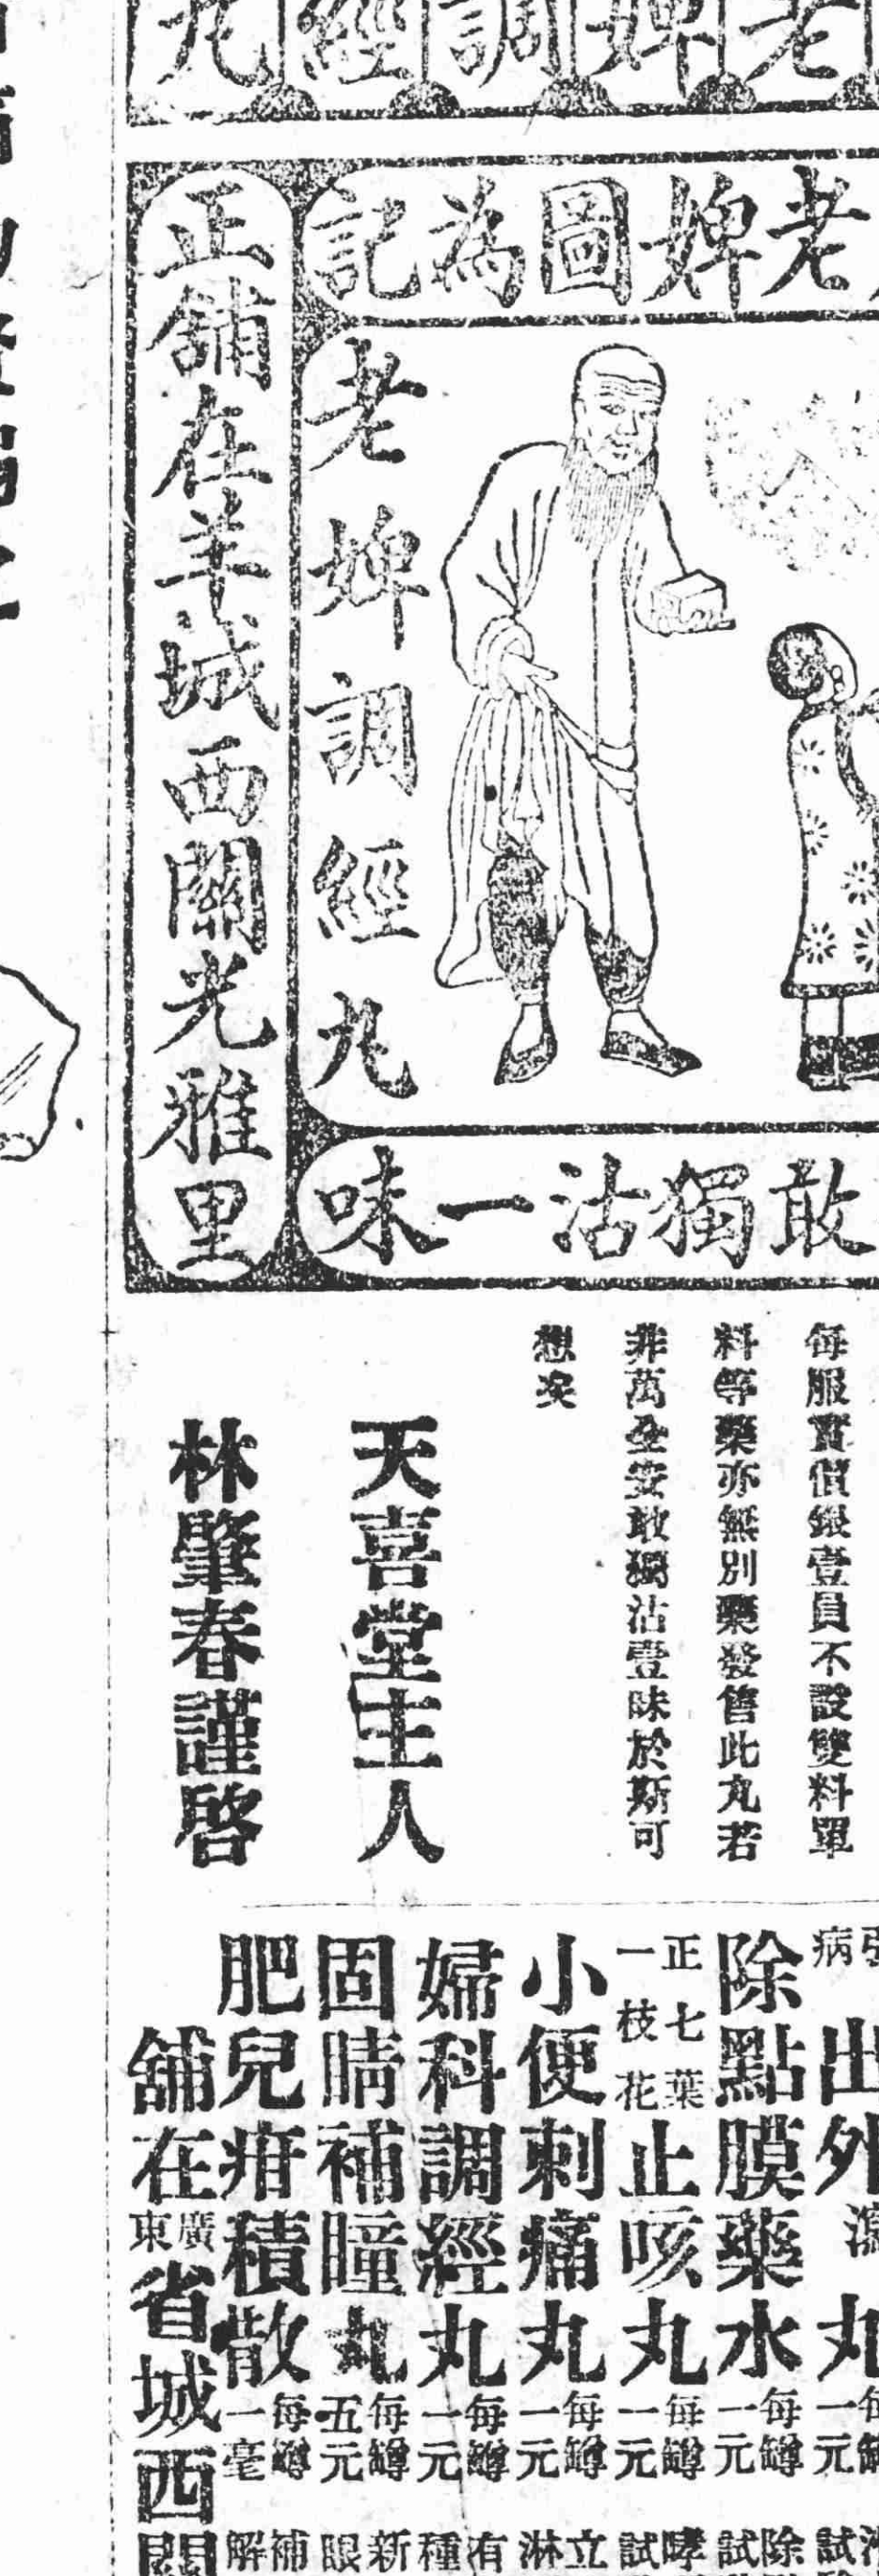 老婢調經丸
老婢圖為記
老婢調經丸
正舖在羊城西關光雅里
敢獨沽一味
每服實價銀壹員不設雙料單
料等藥亦無別藥發售此丸若
非萬全安敢獨沽壹味於斯可
想矣
天喜堂主人
林肇春謹啓
病 出外 丸 一元
除點膜藥水 每罇一元 除 試
正七葉一枝花止咳丸 每罇一元 哮 試
小便刺痛丸 每罇一元 立 淋
婦科調經丸 每罇一元 有 種
固睛補瞳丸 每罇五元 新 眼
肥兒疳積散 每罇一毫 補 解
舖在廣東省城西關